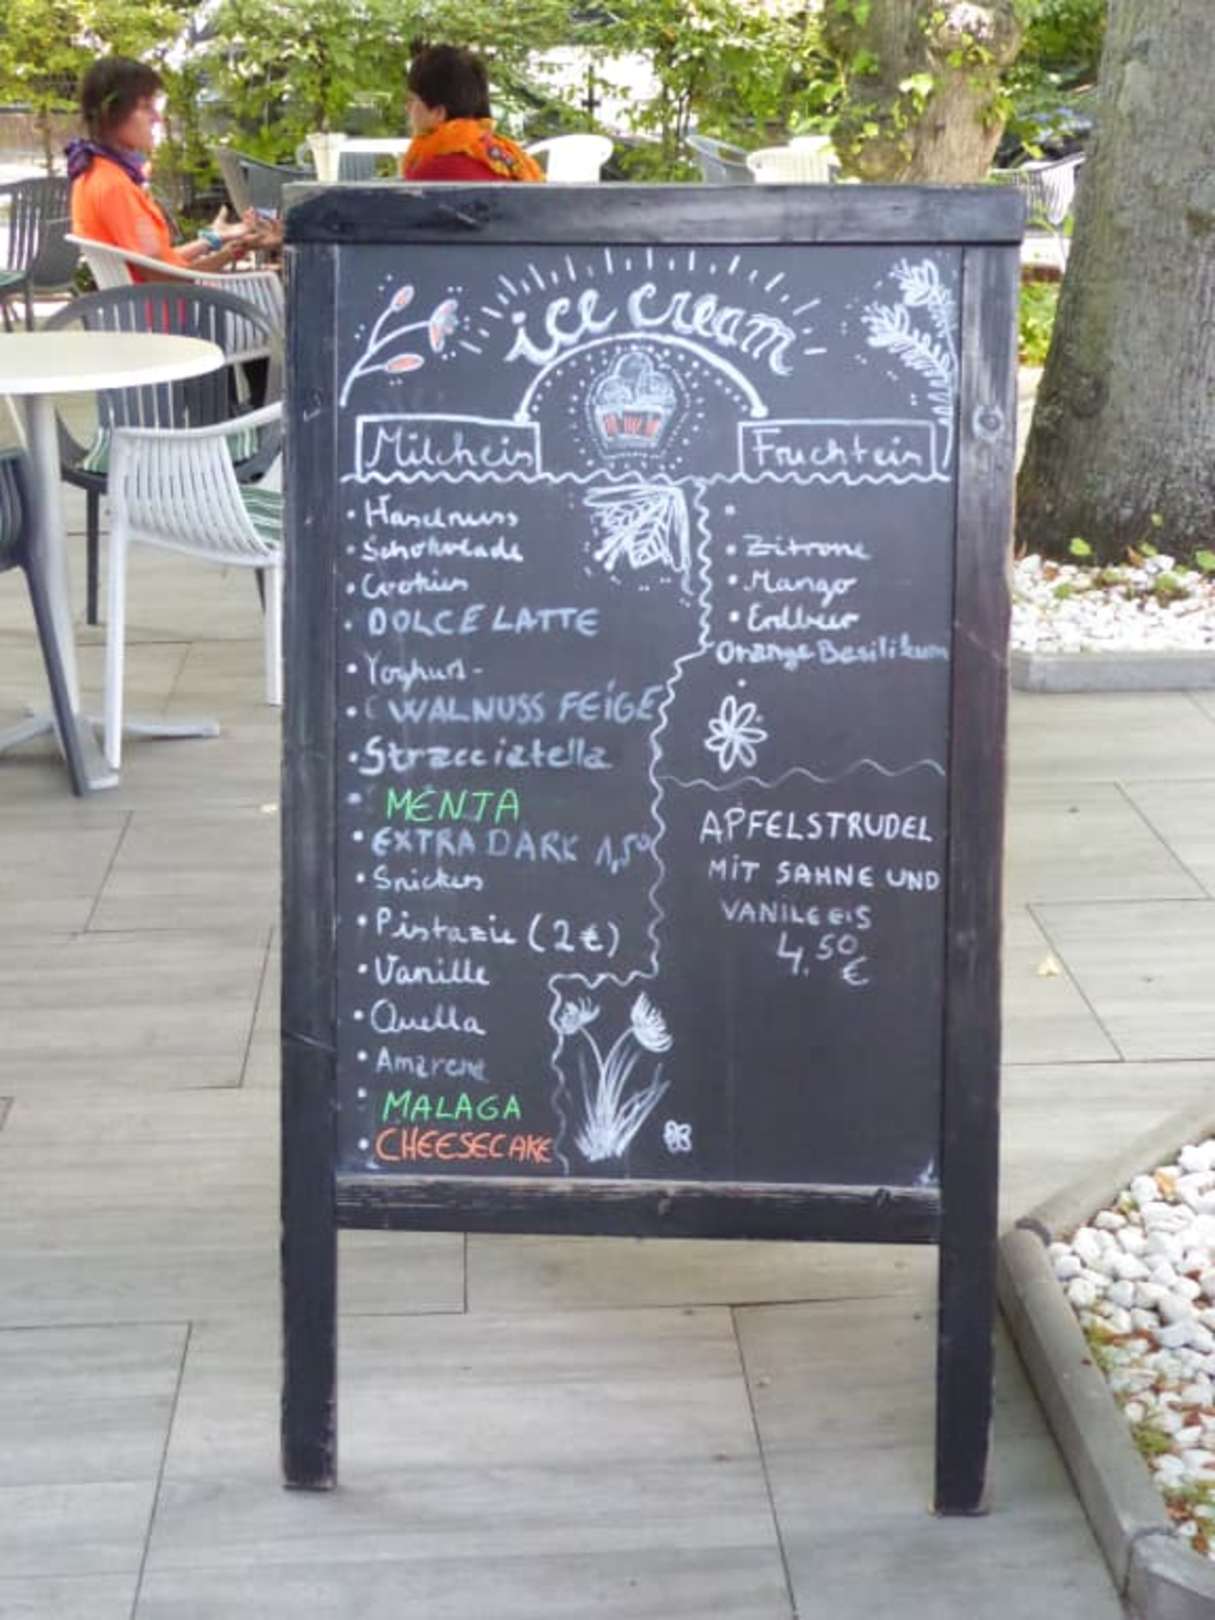 ice cream
Milcheis
Fruchteis
• Haselnuss
• Schokolade
• Cookies
• DOLCE LATTE
• Yoghurt-
• WALNUSS FEIGE
• Stracciatella
• MENTA
• EXTRA DARK 1,50
• Snickers
• Pistazie (2€)
• Vanille
• Quella
• Amarene
• MALAGA
• CHEESECAKE
• Zitrone
• Mango
• Erdbeer
Orange Basilikum
APFELSTRUDEL
MIT SAHNE UND
VANILEEIS
4.50
€